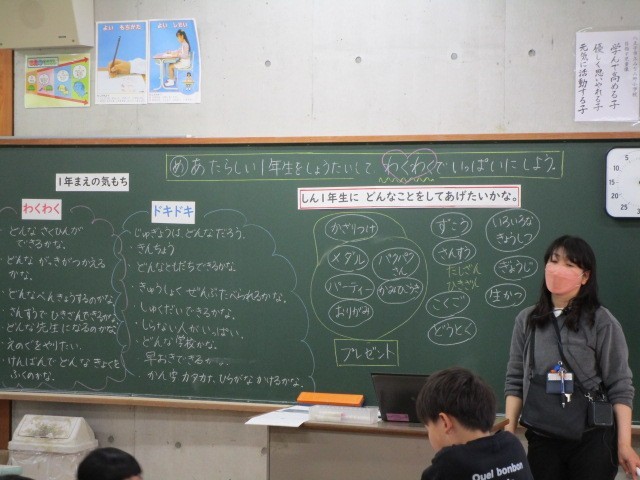 よい もちかた
よい しせい
学んで高める子
優しく思いやれる子
元気に活動する子
め あたらしい1年生をしょうたいして わくわくでいっぱいにしよう。
1年まえの気もち
わくわく
・どんな さくひんが
できるかな。
・どんな がっきがつかえる
かな。
・どんなべんきょうするのかな。
・さんすうで ひきざんできるかな。
・どんな先生になるのかな。
・えのぐをやりたい。
・けんばんで どんな きょくを
ふくのかな。
ドキドキ
・じゅぎょうは、どんなだろう。
・きんちょう
・どんなともだちできるかな。
・きゅうしょく ぜんぶたべられるかな。
・しゅくだいできるかな。
・しらない人がいっぱい。
・どんな学校かな。
・早おきできるかな。
・かん字 カタカナ、ひらがな かけるかな。
しん1年生に どんなことをしてあげたいかな。
かざりつけ
メダル
パーティー
おりがみ
プレゼント
ずこう
さんすう
たしざん
ひきざん
こくご
どうとく
いろいろな
きょうしつ
ぎょうじ
生かつ
5
10
15
20
25
Quel bonbon